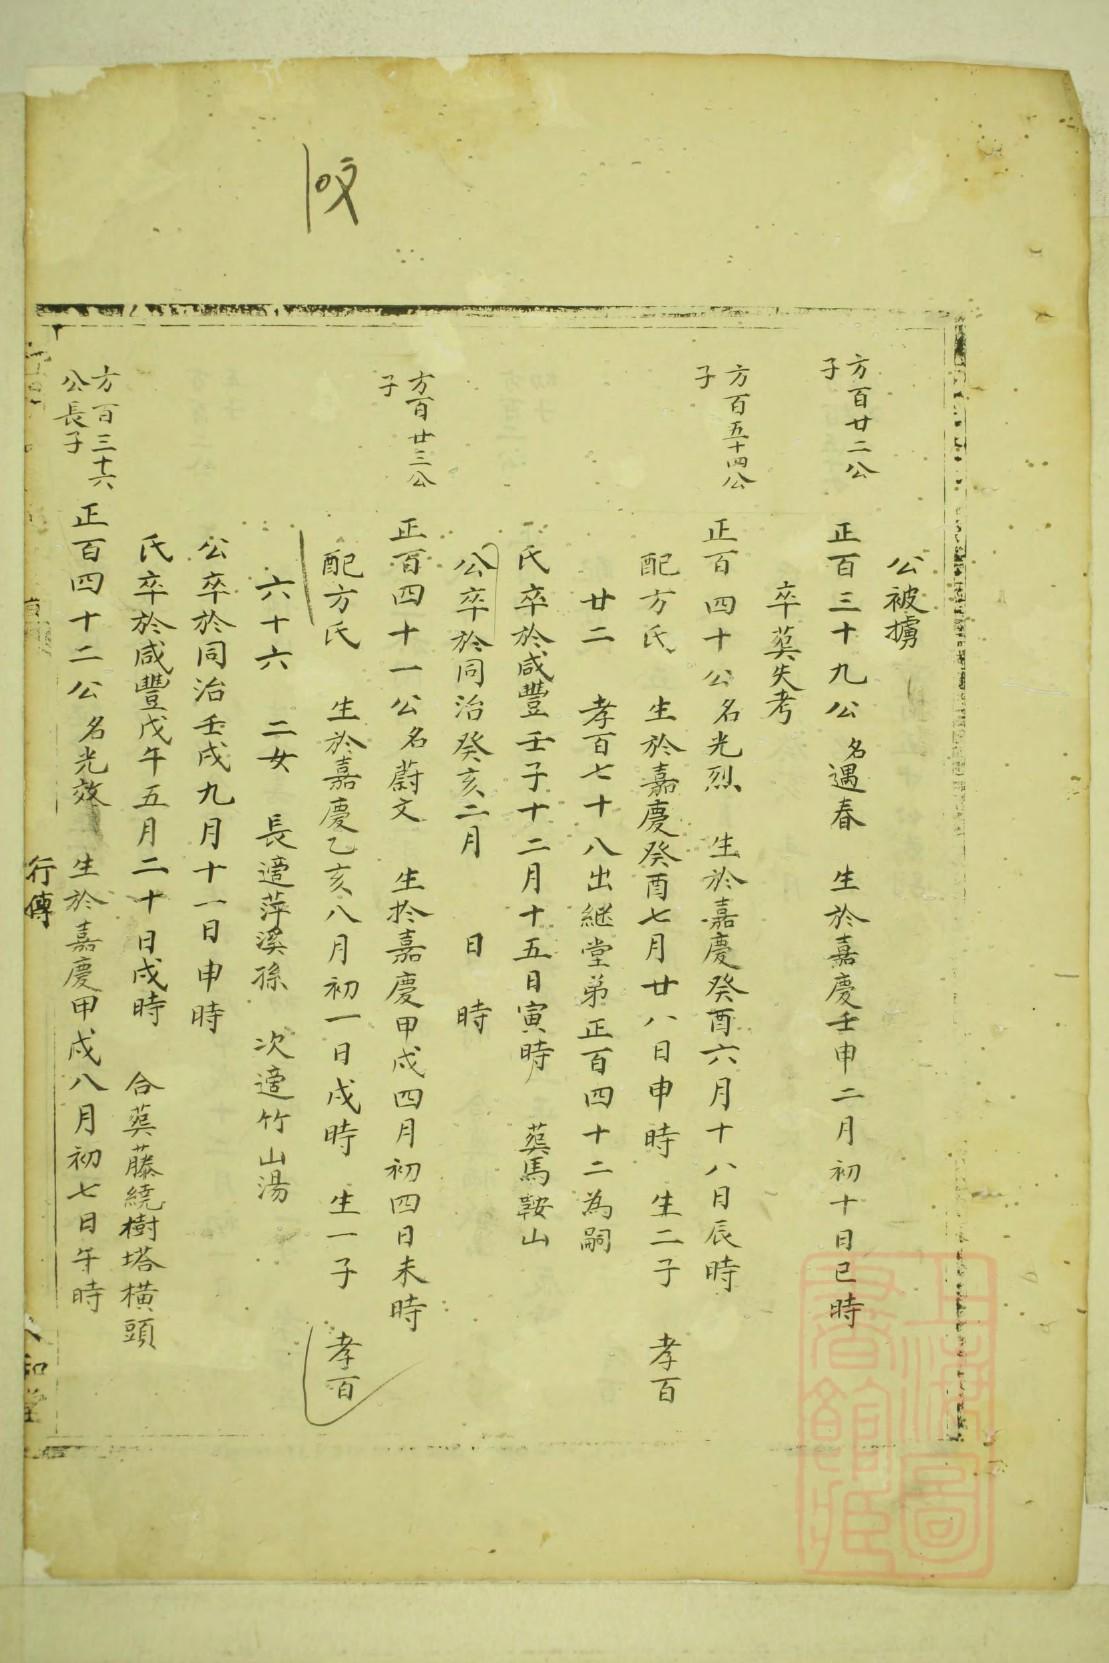 公被擄
方百廿二公子
正百三十九公名遇春 生於嘉慶壬申二月初十日巳時
卒塟失考
方百五十四公子
正百四十公名光烈 生於嘉慶癸酉六月十八日辰時
配方氏 生於嘉慶癸酉七月廿八日申時 生二子 孝百
廿二 孝百七十八出継堂弟正百四十二為嗣
氏卒於咸豐壬子十二月十五日寅時 塟馬鞍山
公卒於同治癸亥二月 日 時
方百廿三公子
正百四十一公名蔚文 生於嘉慶甲戌四月初四日未時
配方氏 生於嘉慶乙亥八月初一日戌時 生一子 孝百
六十六 二女 長適萍溪孫 次適竹山湯
公卒於同治壬戌九月十一日申時
氏卒於咸豐戊午五月二十日戌時 合塟藤繞樹塔橫頭
方百三十六公長子
正百四十二公名光效 生於嘉慶甲戌八月初七日午時
行傳
和堂
上海圖書館藏